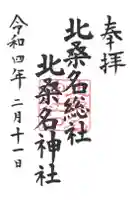 奉拝
北桑名総社
北桑名神社
令和四年二月十一日